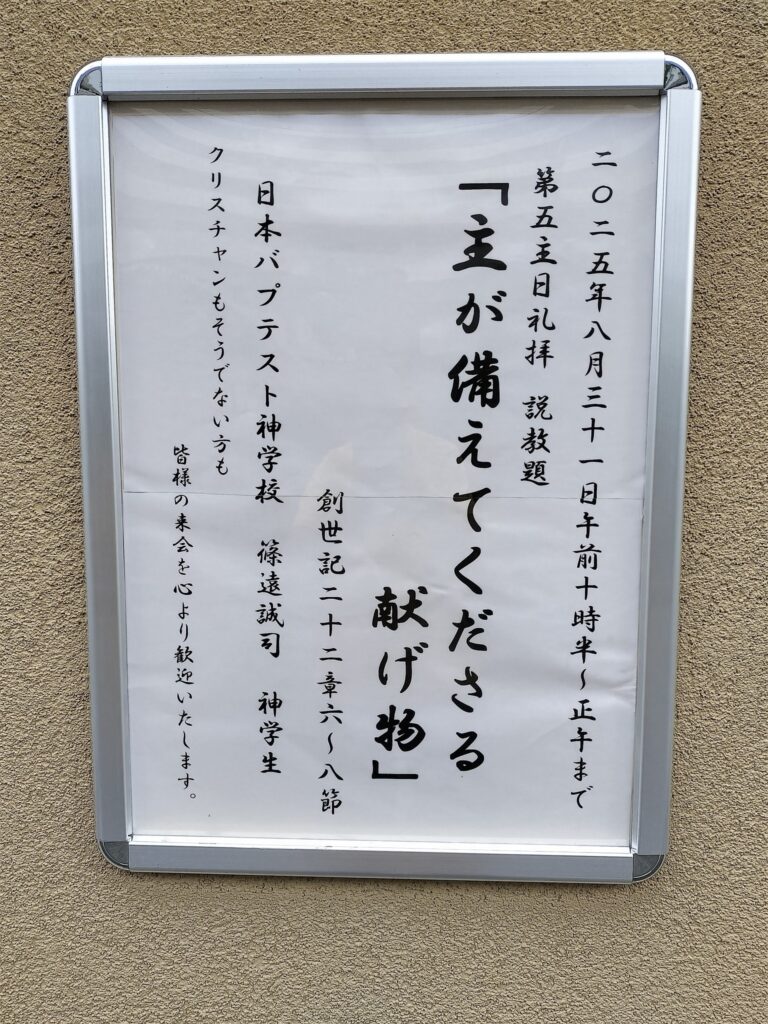 二〇二五年八月三十一日午前十時半～正午まで
第五主日礼拝　説教題
「主が備えてくださる
献げ物」
創世記二十二章六～八節
日本バプテスト神学校　篠遠誠司　神学生
クリスチャンもそうでない方も
皆様の来会を心より歓迎いたします。